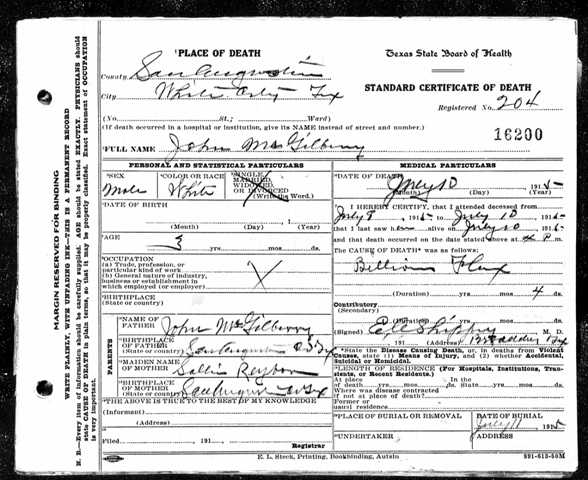 PLACE OF DEATH
Texas State Board of Health
County San Augustine
City White City Tex
STANDARD CERTIFICATE OF DEATH
Registered No. 204
(No. St.; Ward)
(If death occurred in a hospital or institution, give its NAME instead of street and number.)
16200
FULL NAME John McGilberry
PERSONAL AND STATISTICAL PARTICULARS
MEDICAL PARTICULARS
SEX
Male
COLOR OR RACE
White
SINGLE,
MARRIED,
WIDOWED,
OR DIVORCED
(Write the Word.)
DATE OF BIRTH
(Month) (Day) (Year)
AGE
3 yrs. mos. ds.
OCCUPATION
(a) Trade, profession, or
particular kind of work
(b) General nature of industry,
business or establishment in
which employed (or employer)
BIRTHPLACE
(State or country)
PARENTS
NAME OF
FATHER John McGilberry
BIRTHPLACE
OF FATHER San Augustine
(State or country)
MAIDEN NAME
OF MOTHER Sallie
BIRTHPLACE
OF MOTHER San Augustine
(State or country)
THE ABOVE IS TRUE TO THE BEST OF MY KNOWLEDGE
(Informant)
(Address)
Filed 191
Registrar
DATE OF DEATH
July 10 1915
(Month) (Day) (Year)
I HERBY CERTIFY, that I attended deceased from
July 8, 1915 to July 10 1915
that I last saw alive on July 10 1915
and that death occurred on the date stated above at 4 P m.
The CAUSE OF DEATH was as follows:
Billious Flux
(Duration) yrs. mos. 4 ds.
Contributory
(Secondary)
(Duration) yrs. mos. ds.
(Signed) M. D.
191 (Address) Tex
State the Disease Causing Death, or, in deaths from Violent
Causes, state (1) Means of Injury, and (2) whether Accidental,
Suicidal or Homicidal.
LENGTH OF RESIDENCE (For Hospitals, Institutions, Transients, or Recent Residents.)
At place In the
of death yrs. mos. ds. State yrs. mos. ds.
Where was disease contracted
if not at place of death?
Former or
usual residence
PLACE OF BURIAL OR REMOVAL
DATE OF BURIAL
July 11 1915
UNDERTAKER
ADDRESS
E. L. Steck, Printing, Bookbinding, Autsin
891-613-50M
MARGIN RESERVED FOR BINDING
WRITE PLAINLY, WITH UNFADING INK—THIS IS A PERMANENT RECORD
N. B.—Every item of information should be carefully supplied. AGE should be stated EXACTLY. PHYSICIANS should
state CAUSE OF DEATH in plain terms, so that it may be properly classified. Exact statement of OCCUPATION
is very important.